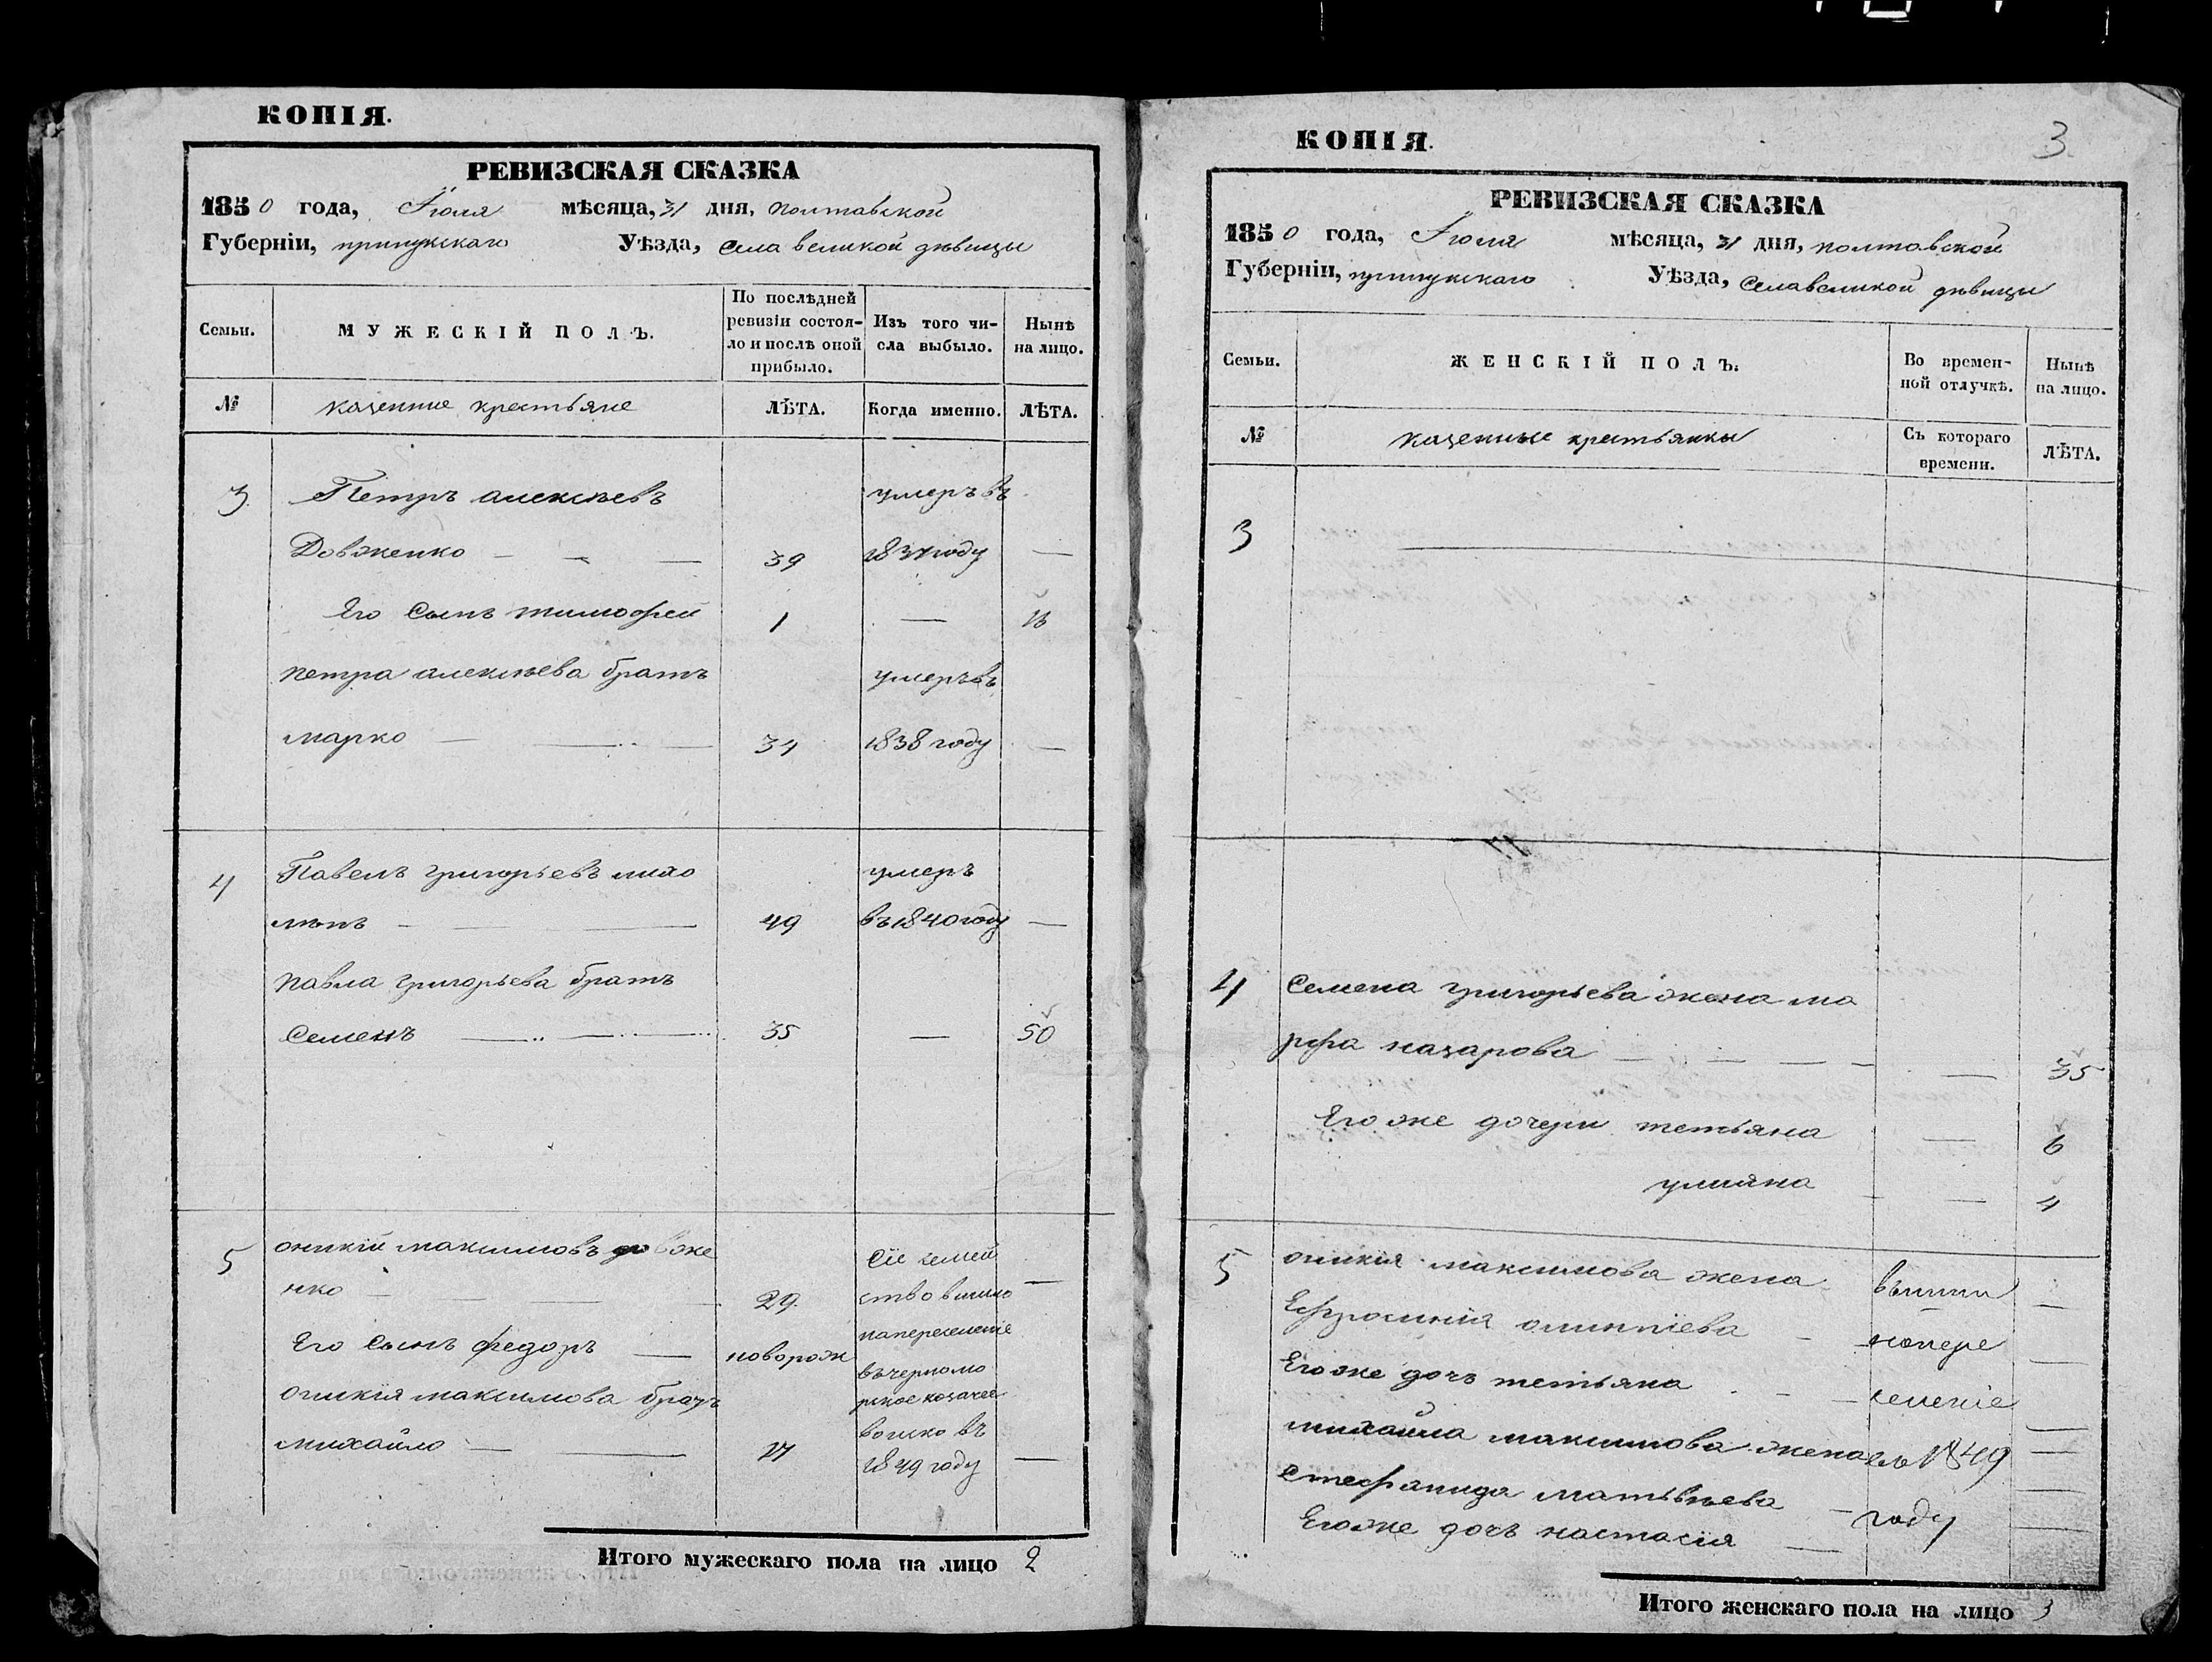 КОПІЯ.
РЕВИЗСКАЯ СКАЗКА
1850 года, Іюля мѣсяца, 31 дня, полтавской
Губерніи, прилукскаго Уѣзда, села великой дѣвицы
Семьи.
МУЖЕСКІЙ ПОЛЪ.
По послѣдней ревизіи состоя-
ло и послѣ оной прибыло.
Изъ того чи-
сла выбыло.
Нынѣ на лицо.
№
казенние крестьяне
ЛѢТА.
Когда именно.
ЛѢТА.
3 Петръ алексѣевъ умеръ въ
Довженко — — — 39 году —
Его Сынъ тимофей 1 —
петра алексѣева братъ умеръ въ
марко — — — 34 1838 году —
4 Павелъ григорьевъ умеръ
— — — 49 въ 1840 году —
павла григорьева братъ
Семенъ — — — 35 — 50
5 оникій максимовъ довже Сіе семей
нко — — — 29 ство вишло —
на переселеніе
Его Сынъ федоръ — новорож
въ черномо
оникія максимова братъ рское козачее
войско въ
михайло — — 17 1849 году —
Итого мужескаго пола на лицо 2
КОПІЯ.
3
РЕВИЗСКАЯ СКАЗКА
1850 года, Іюля мѣсяца, 31 дня, полтавской
Губерніи, прилукскаго Уѣзда, села великой дѣвицы
Семьи.
ЖЕНСКІЙ ПОЛЪ.
Во времен-
ной отлучкѣ.
Нынѣ на лицо.
№
казенные крестьянки
Съ котораго времени.
ЛѢТА.
3 —
4 Семена григорьева жена ма
рфа назарова — — — — — 35
Его же дочери тетьяна — 6
улияна — 4
5 оникія максимова жена вышли —
Ефросинія — напере —
Его же дочъ тетьяна — селеніе —
михайла максимова жена въ 1849 —
Стефанида матвѣева — году —
Его же дочъ настасія — —
Итого женскаго пола на лицо 3